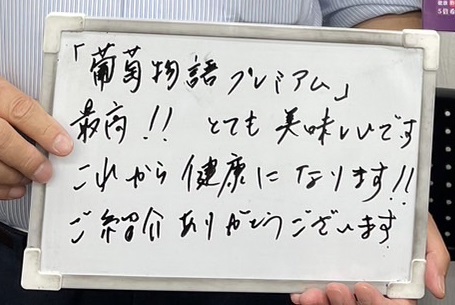 「葡萄物語プレミアム」
最高!! とても美味しいです
これから健康になります!!
ご紹介ありがとうございます